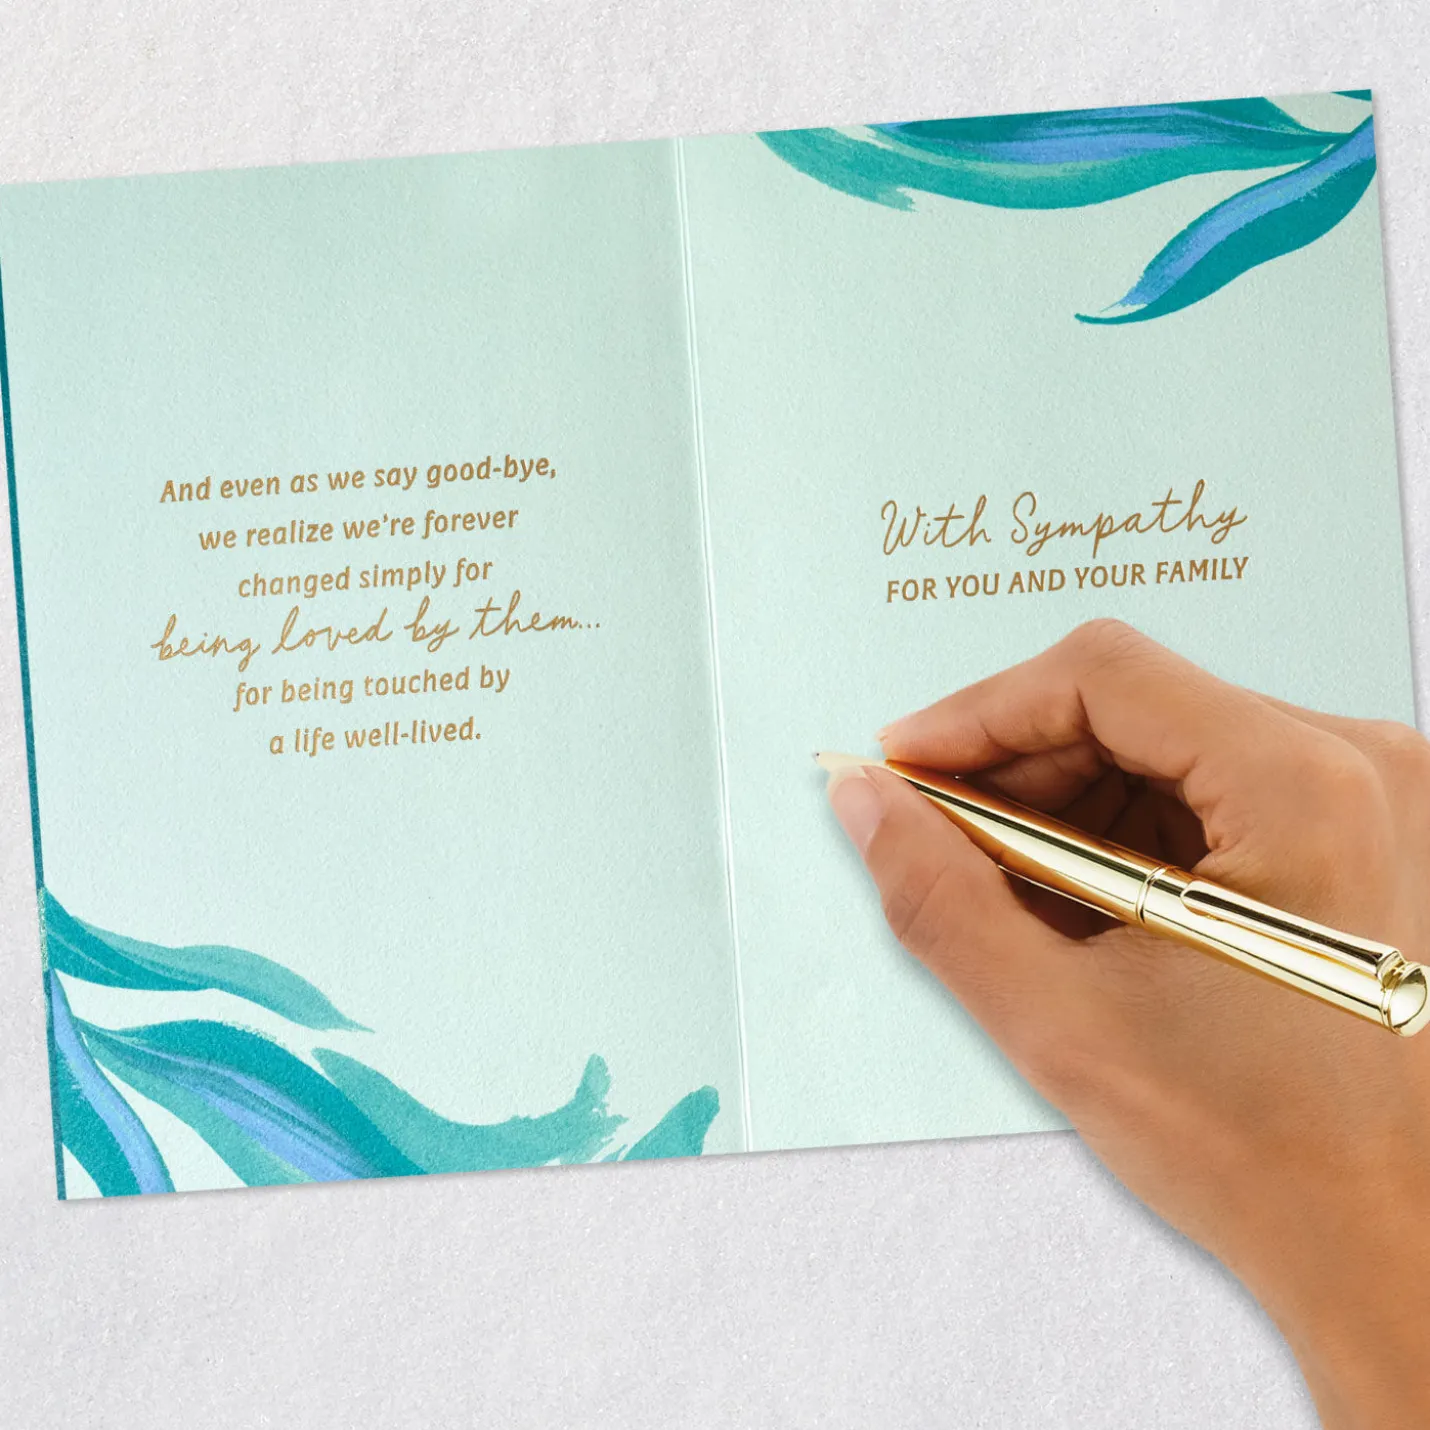 And even as we say good-bye,
we realize we're forever
changed simply for
being loved by them...
for being touched by
a life well-lived.
With Sympathy
FOR YOU AND YOUR FAMILY